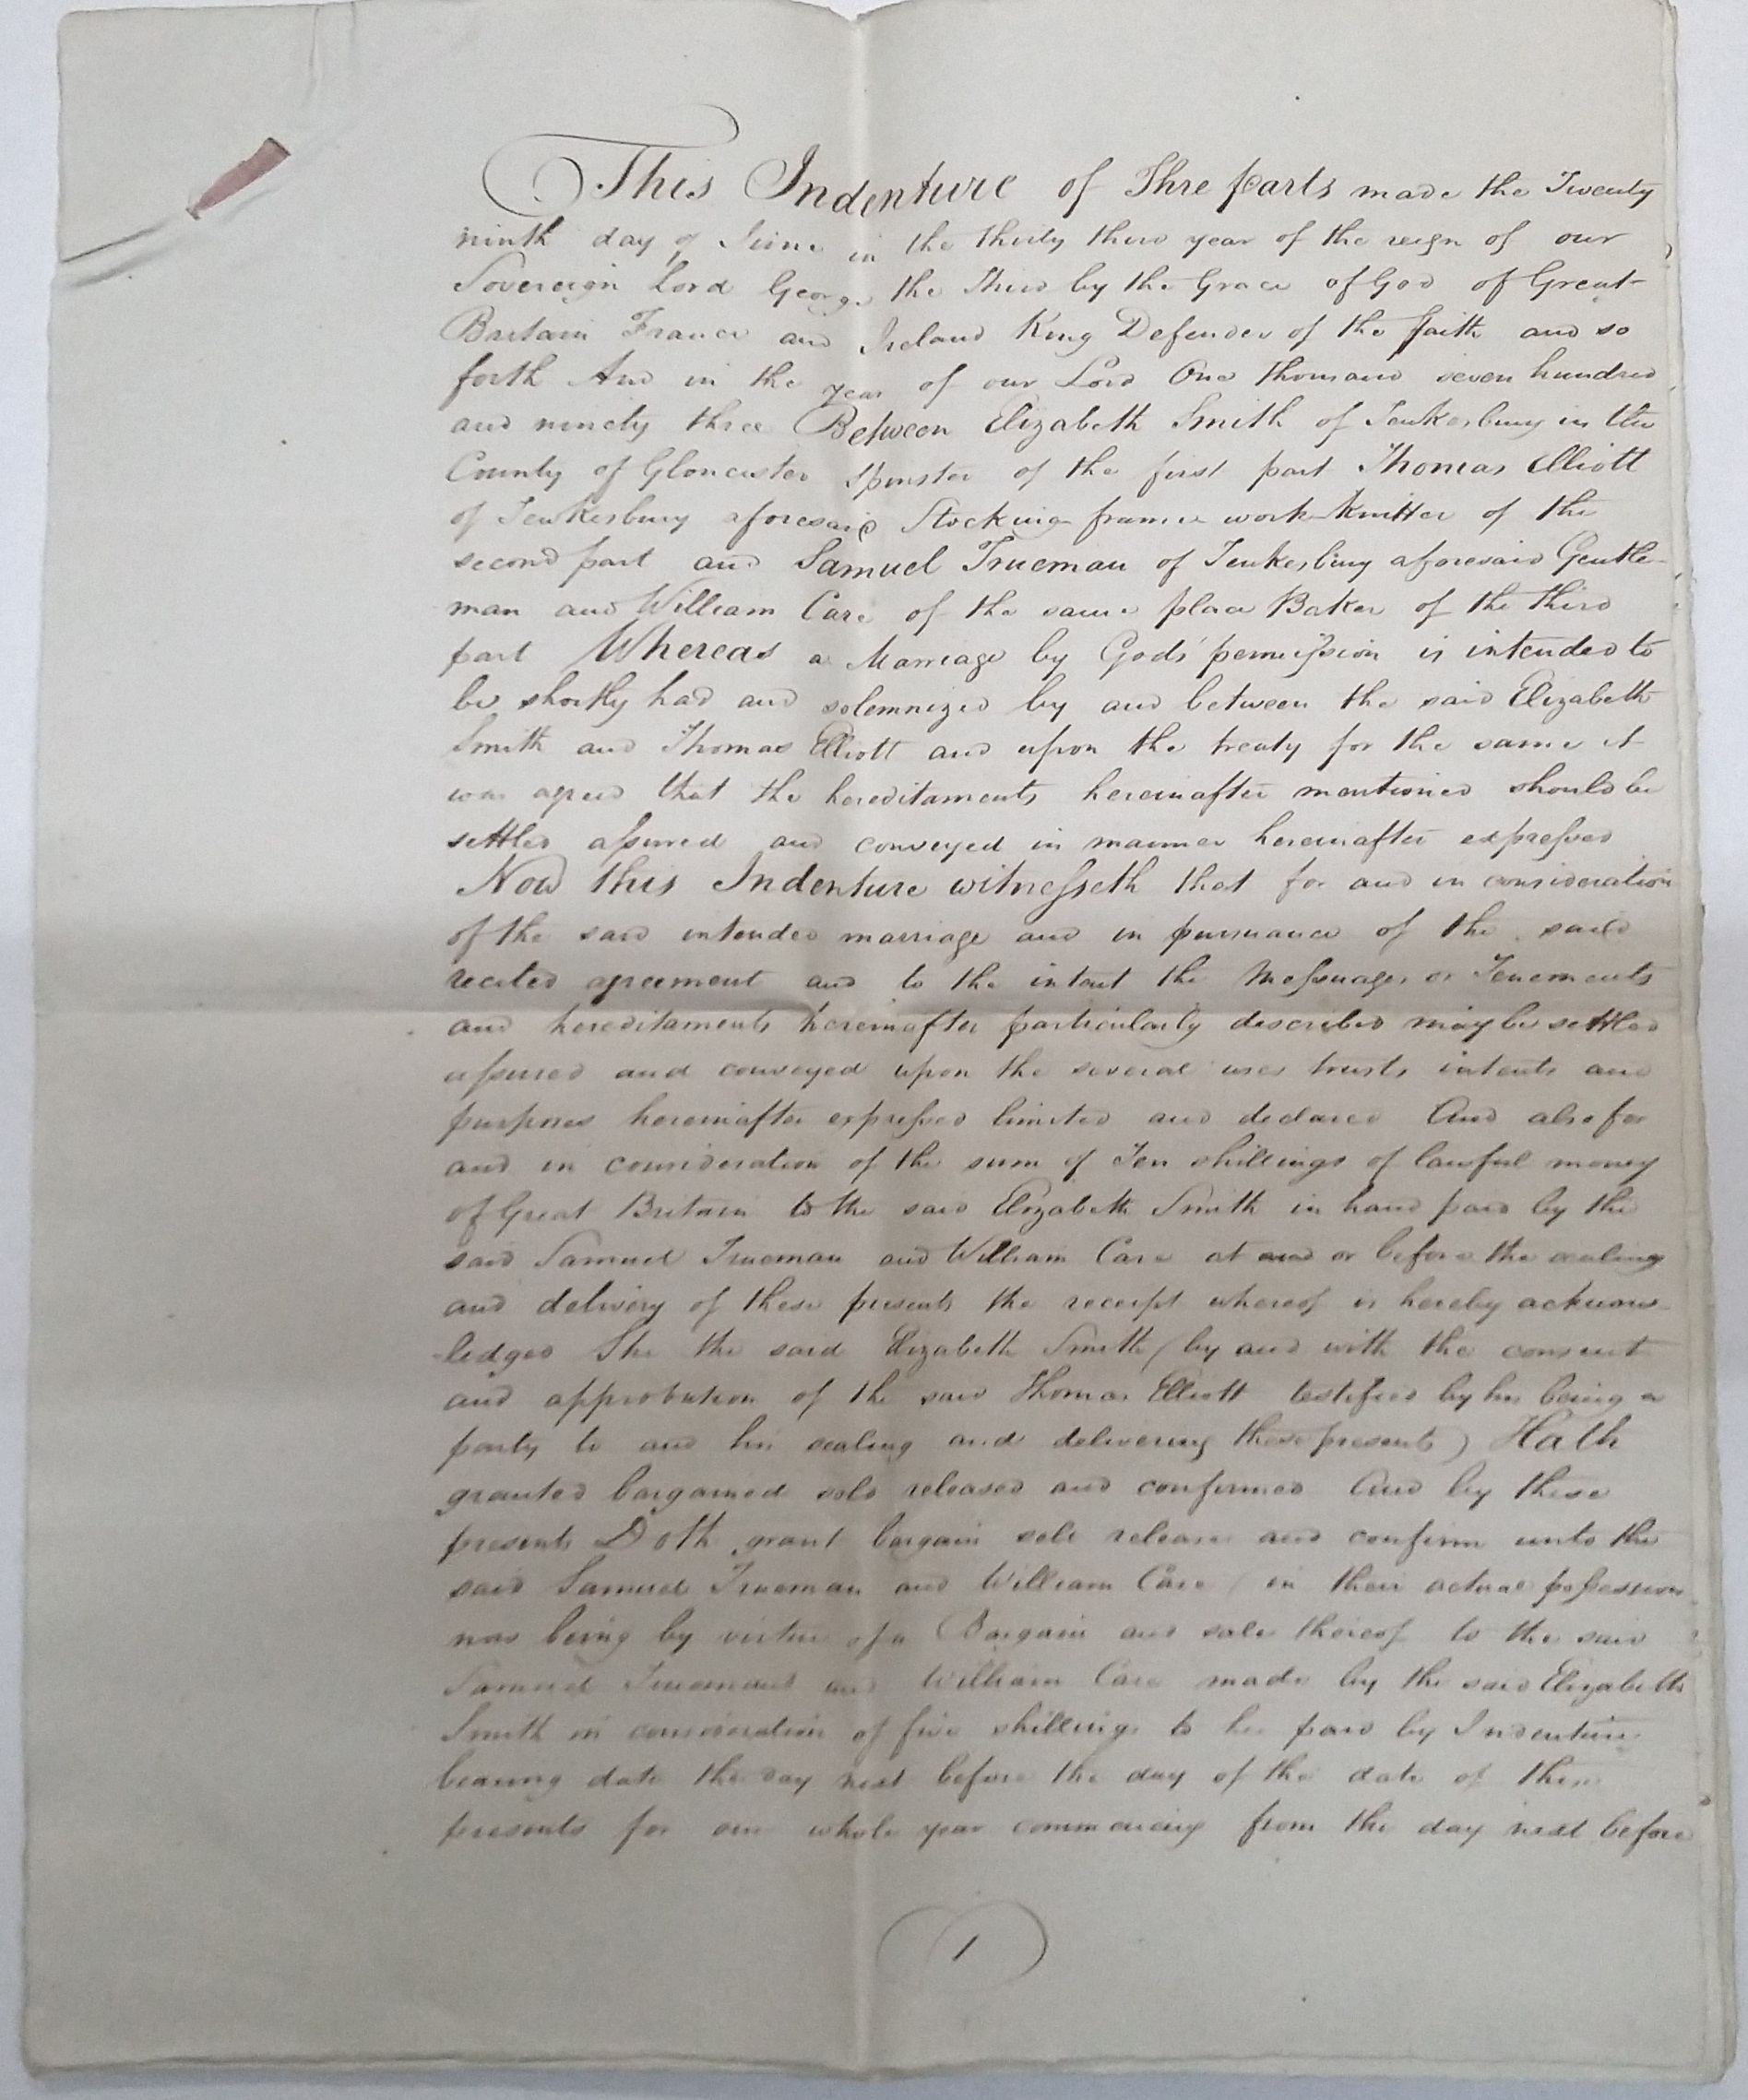 This Indenture of Thre parts made the Twenty
ninth day of June in the thirty third year of the reign of our
Sovereign Lord George the Third by the Grace of God of Great
Britain France and Ireland King Defender of the faith and so
forth And in the year of our Lord One thousand seven hundred
and ninety three Between Elizabeth Smith of Tewkesbury in the
County of Gloucester Spinster of the first part Thomas Elliott
of Tewkesbury aforesaid Stocking frame work knitter of the
second part and Samuel Trueman of Tewkesbury aforesaid Gentle-
man and William Care of the same place Baker of the third
part Whereas a Marriage by Gods permission is intended to
be shortly had and solemnized by and between the said Elizabeth
Smith and Thomas Elliott and upon the treaty for the same it
was agreed that the hereditaments hereinafter mentioned should be
settled assured and conveyed in manner hereinafter expressed
Now this Indenture witnesseth that for and in consideration
of the said intended marriage and in pursuance of the said
recited agreement and to the intent the Messuages or Tenements
and hereditaments hereinafter particularly described may be settled
assured and conveyed upon the several uses trusts intents and
purposes hereinafter expressed limited and declared And also for
and in consideration of the sum of Ten shillings of lawful money
of Great Britain to the said Elizabeth Smith in hand paid by the
said Samuel Trueman and William Care at and or before the sealing
and delivery of these presents the receipt whereof is hereby acknow-
-ledged She the said Elizabeth Smith (by and with the consent
and approbation of the said Thomas Elliott testified by his being a
party to and his sealing and delivering these presents) Hath
granted bargained sold released and confirmed And by these
presents Doth grant bargain sell release and confirm unto the
said Samuel Trueman and William Care (in their actual possession
now being by virtue of a Bargain and sale thereof to the said
Samuel Trueman and William Care made by the said Elizabeth
Smith in consideration of five shillings to her paid by Indenture
bearing date the day next before the day of the date of these
presents for one whole year commencing from the day next before
1